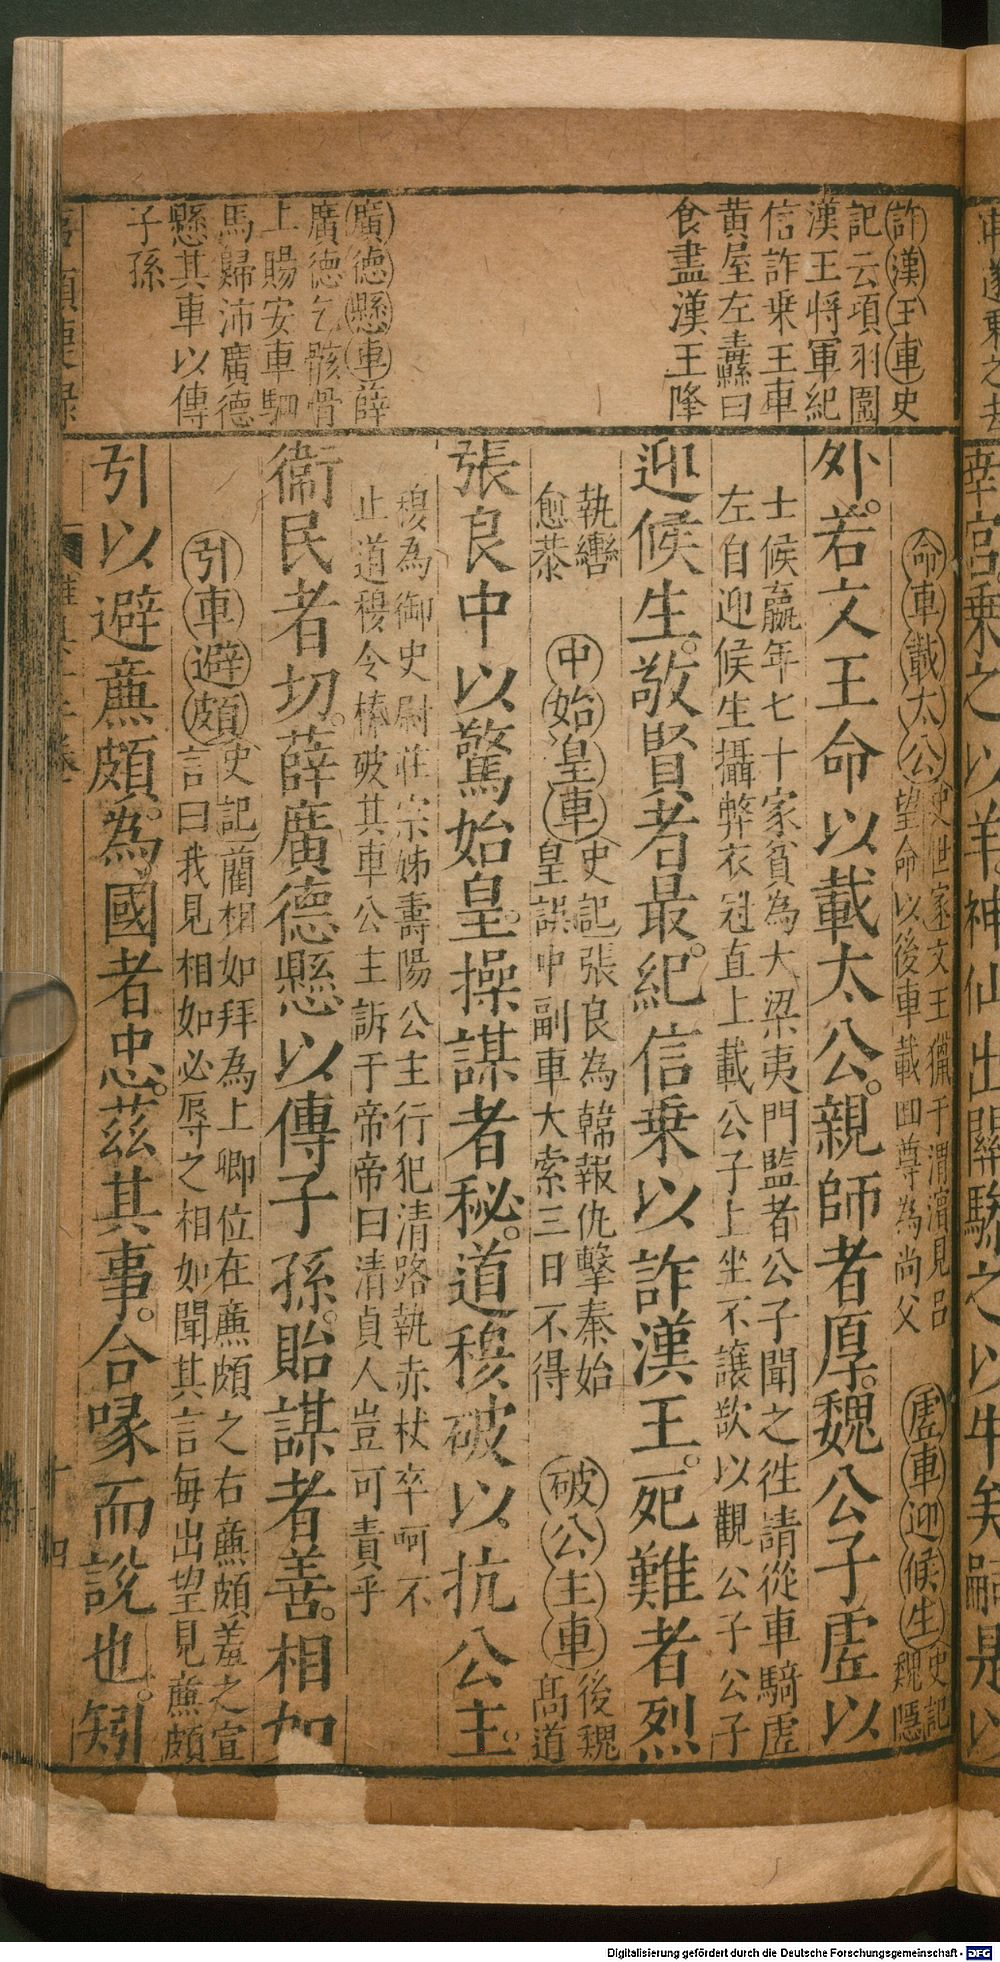 許漢王車史
記云項羽圍
漢王將軍紀
信詐乗王車
黄屋左纛曰
食盡漢王隆
廣徳懸車薛
廣徳乞骸骨
上賜安車駟
馬歸沛廣德
懸其車以傳
子孫
命車載太公史世家文王獵于渭濱見呂
望命以後車載囬尊為尚父
虗車迎候生史記
魏隱
外。若文王命以載太公。親師者厚。魏公子虗以
士候嬴年七十家貧為大梁夷門監者公子聞之徃請從車騎虗
左自迎候生攝弊衣冠直上載公子上坐不讓歘以觀公子公子
迎候生。敬賢者最。紀信乗以詐漢王。死難者烈
執轡
愈恭
中始皇車史記張良為韓報仇擊秦始
皇誤中副車大索三日不得
破公主車後魏
髙道
張良中以驚始皇。操謀者秘。道穆破以抗公主。
穆為御史尉莊宗姊壽陽公主行犯清路執赤杖卒呵不
止道穆令棒破其車公主訴于帝帝曰清貞人豈可責乎
衞民者切。薛廣德懸以傳子孫。貽謀者善。相如
引車避頗史記藺相如拜為上卿位在廉頗之右廉頗羞之宣
言曰我見相如必辱之相如聞其言每出望見廉頗
引以避廉頗。為國者忠。茲其事。合喙而說也。矧
十四
幸宫乗之以羊神仙出關駕之以牛矣嗣是以
Digitalisierung gefördert durch die Deutsche Forschungsgemeinschaft - DFG